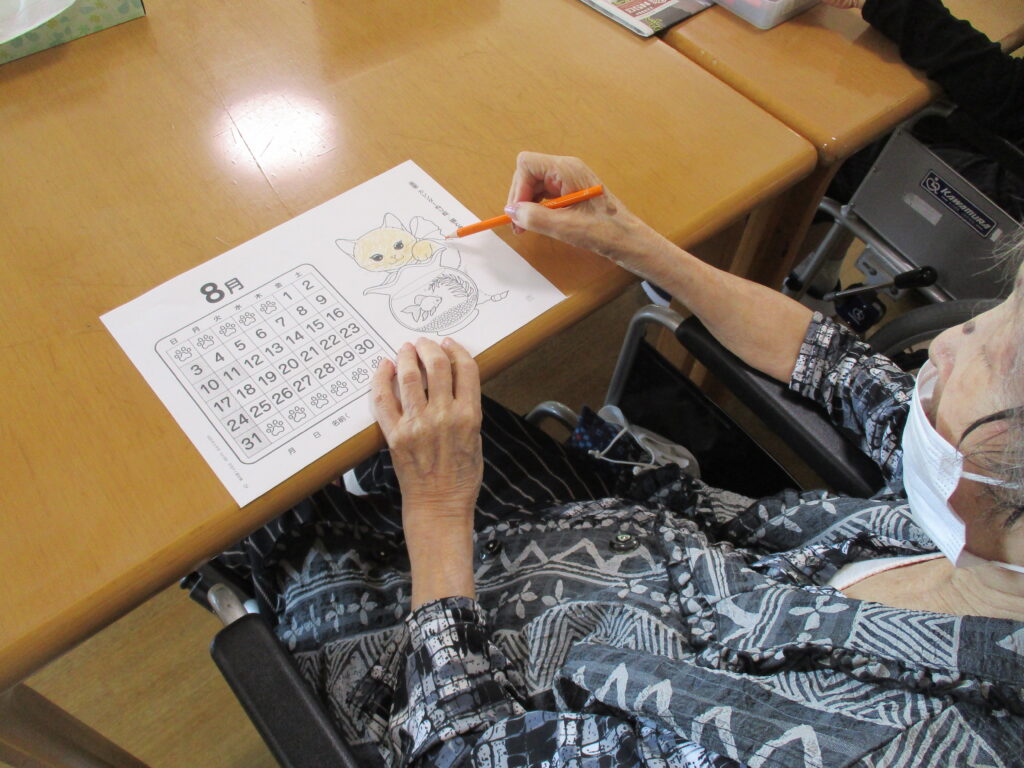 8月
日 月 火 水 木 金 土
1 2
3 4 5 6 7 8 9
10 11 12 13 14 15 16
17 18 19 20 21 22 23
24 25 26 27 28 29 30
31
月 日 名前(
KAWAMURA